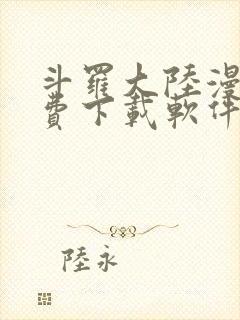 斗羅大陸漫
費下載軟件
陸永